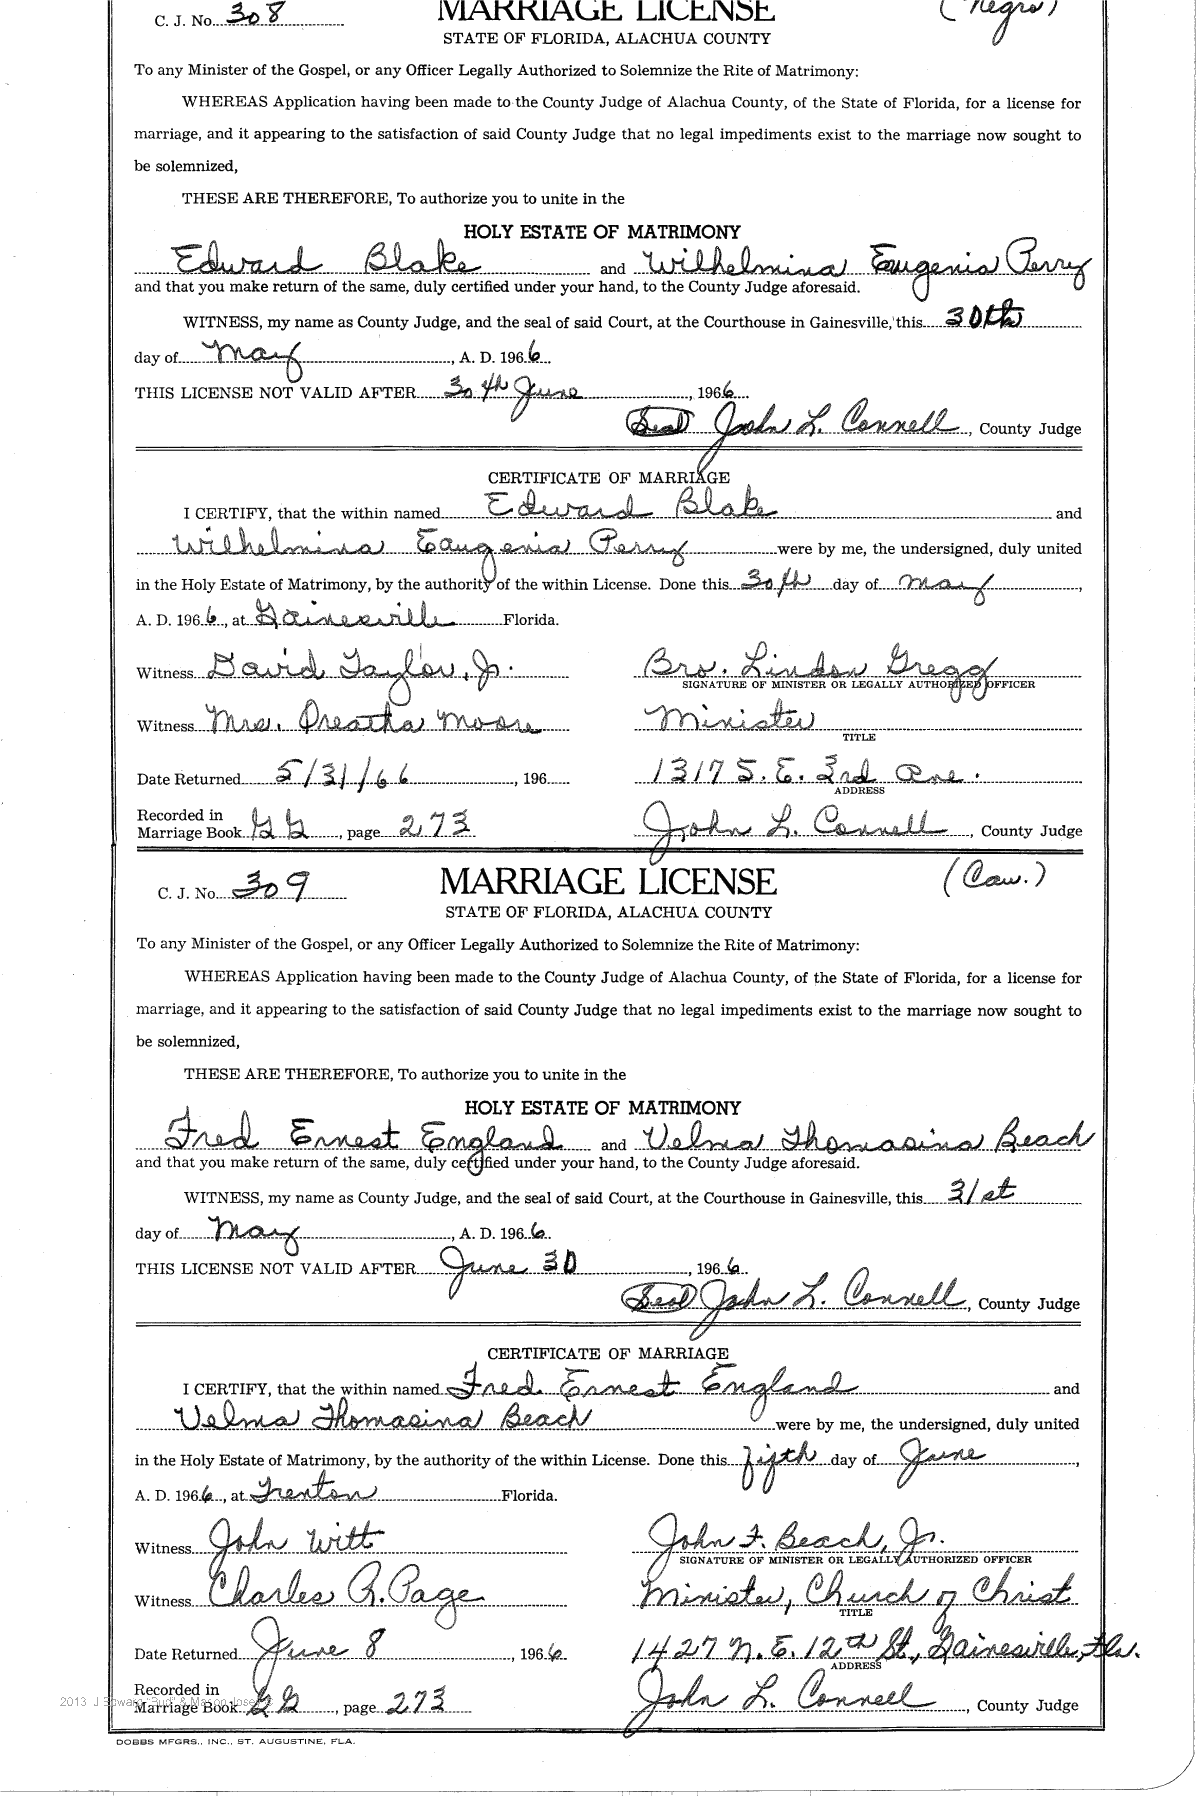 C. J. No. 308 MARRIAGE LICENSE (Negro)
STATE OF FLORIDA, ALACHUA COUNTY
To any Minister of the Gospel, or any Officer Legally Authorized to Solemnize the Rite of Matrimony:
WHEREAS Application having been made to the County Judge of Alachua County, of the State of Florida, for a license for
marriage, and it appearing to the satisfaction of said County Judge that no legal impediments exist to the marriage now sought to
be solemnized,
THESE ARE THEREFORE, To authorize you to unite in the
HOLY ESTATE OF MATRIMONY
Edward Blake and Wilhelmina Eaugenia Perry
and that you make return of the same, duly certified under your hand, to the County Judge aforesaid.
WITNESS, my name as County Judge, and the seal of said Court, at the Courthouse in Gainesville, this 30th
day of May, A. D. 1966.
THIS LICENSE NOT VALID AFTER 30th June, 1966
(Seal) John L. Connell, County Judge
CERTIFICATE OF MARRIAGE
I CERTIFY, that the within named Edward Blake and
Wilhelmina Eaugenia Perry were by me, the undersigned, duly united
in the Holy Estate of Matrimony, by the authority of the within License. Done this 30th day of May,
A. D. 1966, at Gainesville Florida.
Witness David Taylor, Jr. Bro. Lindon Gregg
SIGNATURE OF MINISTER OR LEGALLY AUTHORIZED OFFICER
Witness Mrs. Dreatha Moore Minister
TITLE
Date Returned 5/31/66, 196 1317 S. E. 3rd Ave.
ADDRESS
Recorded in
Marriage Book GG, page 273 John L. Connell, County Judge
C. J. No. 309 MARRIAGE LICENSE (Cau.)
STATE OF FLORIDA, ALACHUA COUNTY
To any Minister of the Gospel, or any Officer Legally Authorized to Solemnize the Rite of Matrimony:
WHEREAS Application having been made to the County Judge of Alachua County, of the State of Florida, for a license for
marriage, and it appearing to the satisfaction of said County Judge that no legal impediments exist to the marriage now sought to
be solemnized,
THESE ARE THEREFORE, To authorize you to unite in the
HOLY ESTATE OF MATRIMONY
Fred Ernest England and Velma Thomasina Beach
and that you make return of the same, duly certified under your hand, to the County Judge aforesaid.
WITNESS, my name as County Judge, and the seal of said Court, at the Courthouse in Gainesville, this 31st
day of May, A. D. 1966.
THIS LICENSE NOT VALID AFTER June 30, 1966
(Seal) John L. Connell, County Judge
CERTIFICATE OF MARRIAGE
I CERTIFY, that the within named Fred Ernest England and
Velma Thomasina Beach were by me, the undersigned, duly united
in the Holy Estate of Matrimony, by the authority of the within License. Done this fifth day of June,
A. D. 1966, at Trenton Florida.
Witness John Witt John F. Beach, Jr.
SIGNATURE OF MINISTER OR LEGALLY AUTHORIZED OFFICER
Witness Charles R. Page Minister, Church of Christ
TITLE
Date Returned June 8, 1966 1427 N. E. 12th St., Gainesville, Fla.
ADDRESS
Recorded in
Marriage Book GG, page 273 John L. Connell, County Judge
DOBBS MFGRS., INC., ST. AUGUSTINE, FLA.